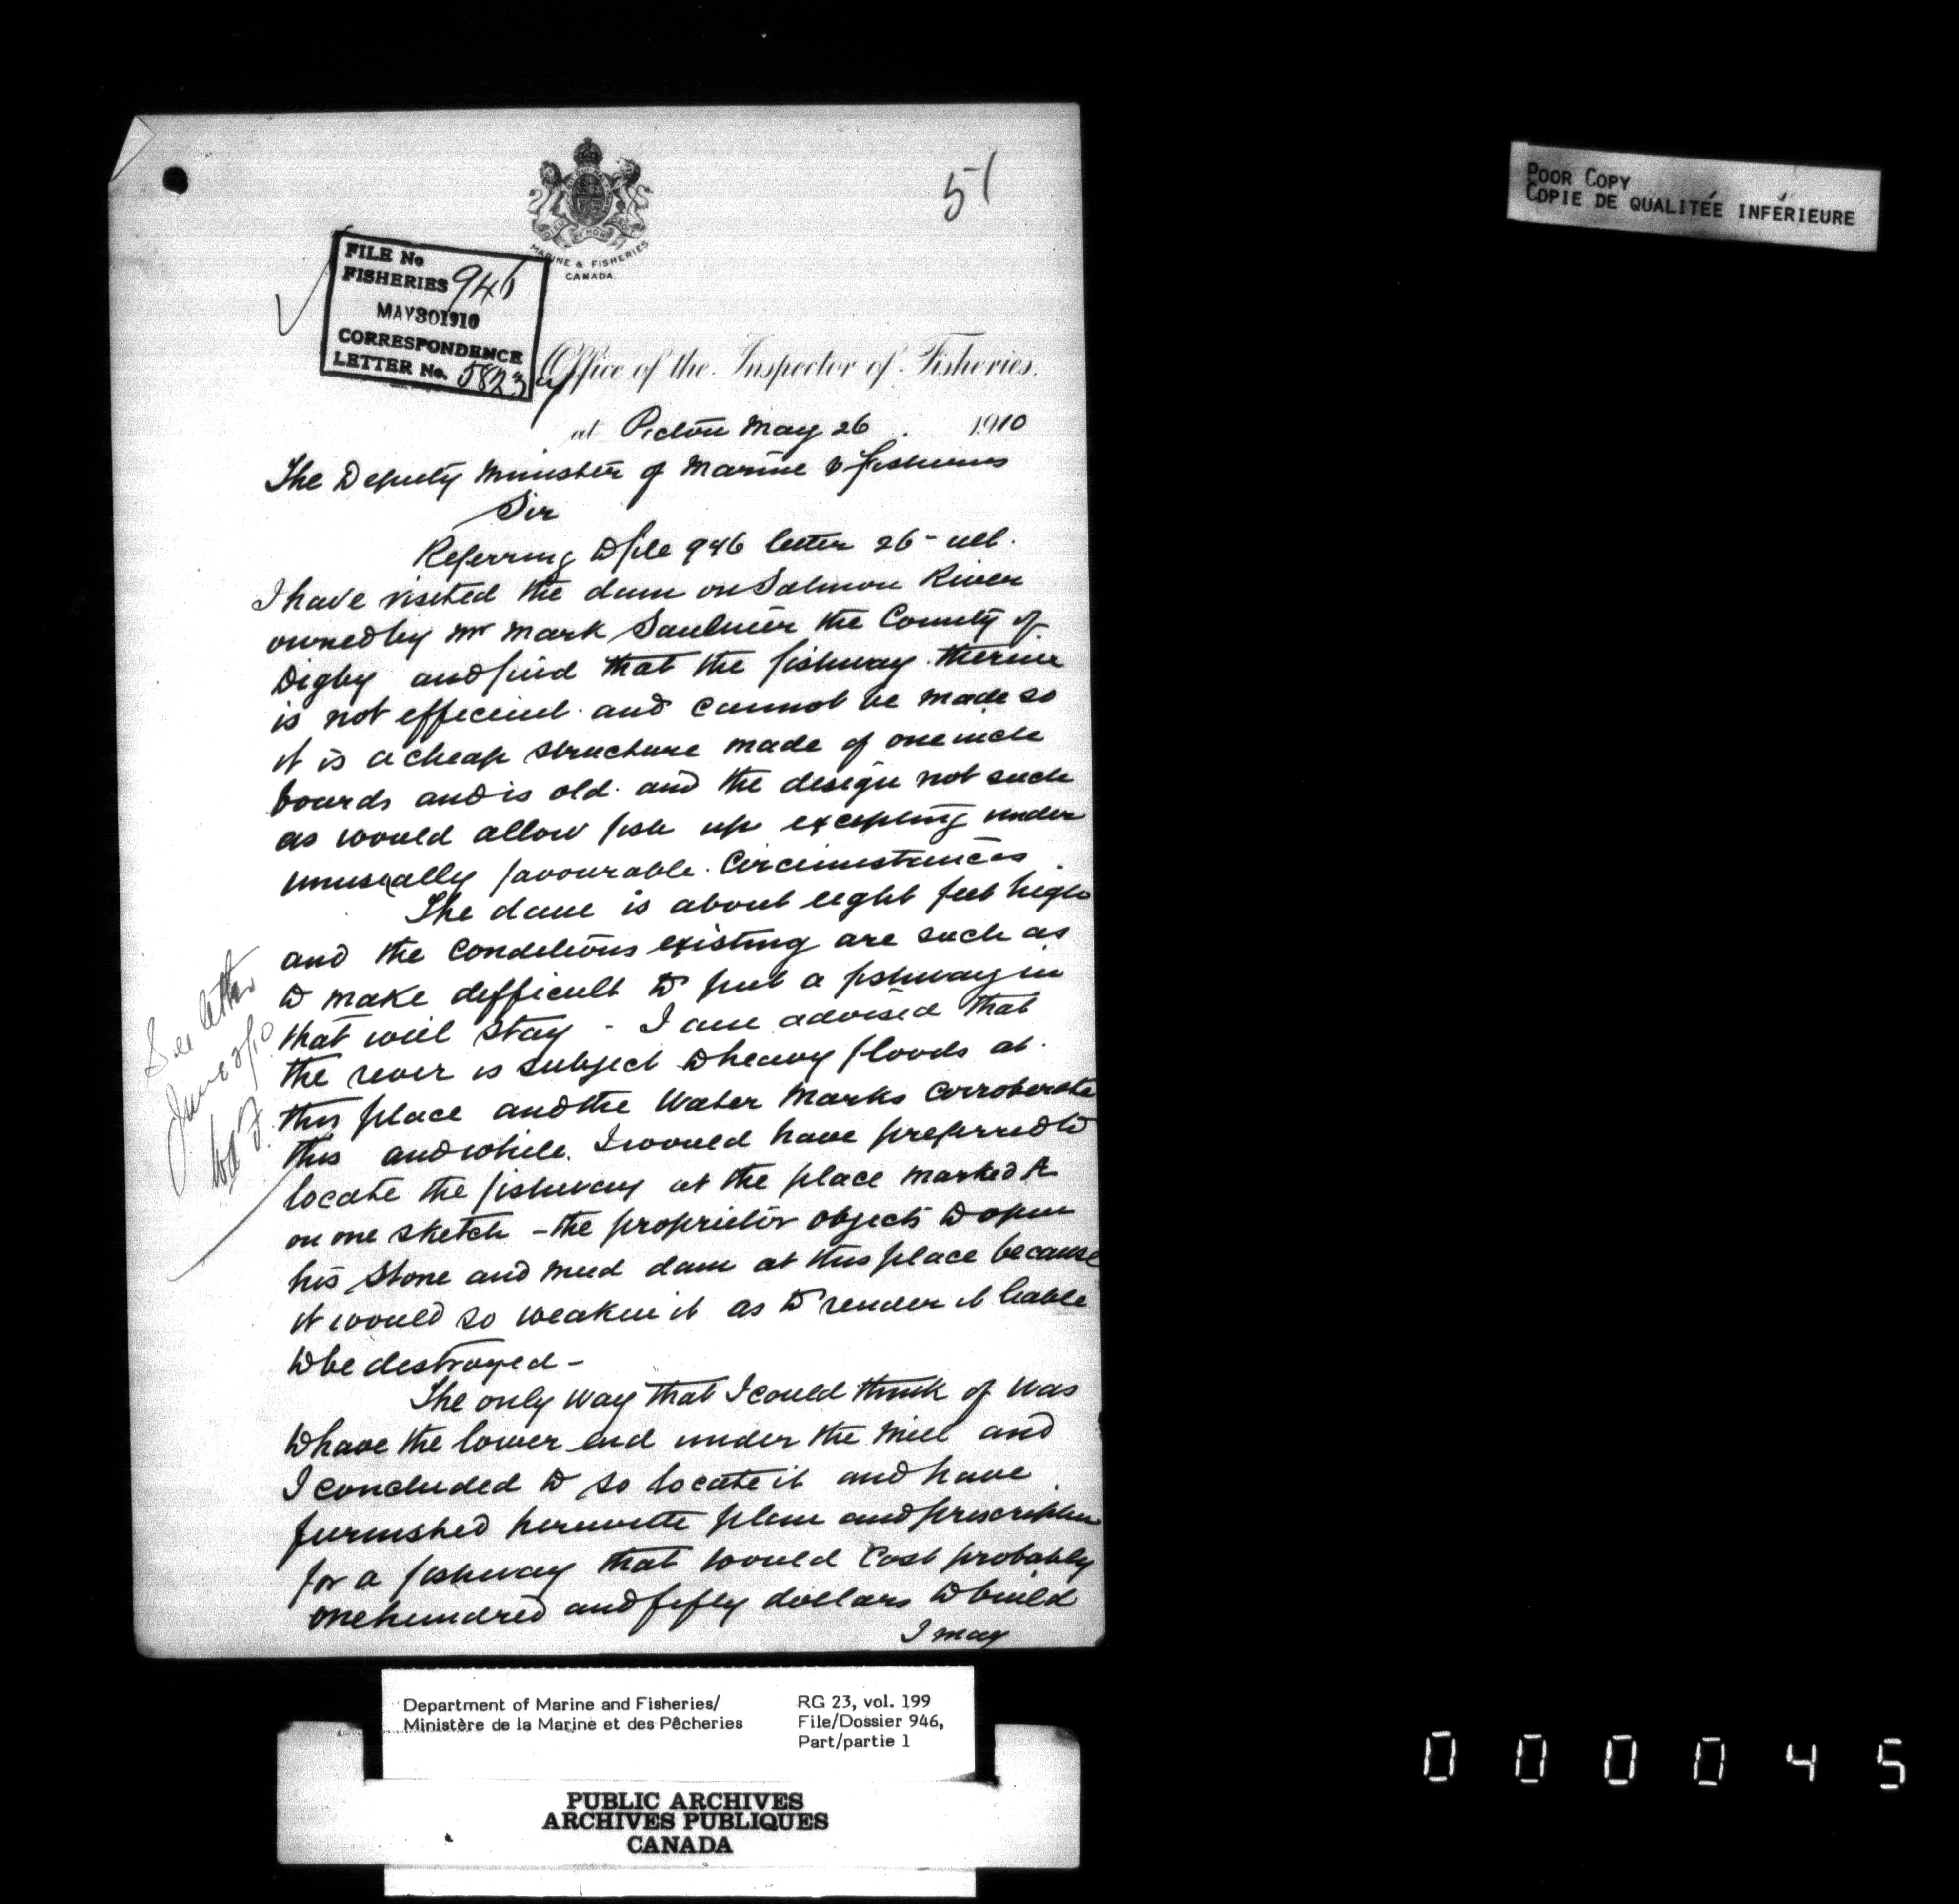 51
DIEU ET MON DROIT
MARINE & FISHERIES
CANADA.
FILE No
FISHERIES 946
MAY 30 1910
CORRESPONDENCE
LETTER No. 5823
Office of the Inspector of Fisheries.
at Pictou May 26 . 1910
The Deputy Minister of Marine & Fisheries
Sir
Referring to file 946 letter 26 - ult.
I have visited the dam on Salmon River
owned by Mr Mark Saulnier the County of
Digby and find that the fishway therein
is not efficient and cannot be made so
it is a cheap structure made of one inch
boards and is old and the design not such
as would allow fish up excepting under
unusually favourable Circumstances.
The dam is about eight feet high
and the conditions existing are such as
to make difficult to put a fishway in
that will stay - I am advised that
the river is subject to heavy floods at
this place and the water marks corroberate
this and while I would have preferred to
locate the fishway at the place marked A
on one sketch - the proprietor objects to open
his stone and mud dam at this place because
it would so weaken it as to render it liable
to be destroyed -
The only way that I could think of was
to have the lower end under the mill and
I concluded to so locate it and have
furnished herewith plan and prescription
for a fishway that would cost probably
one hundred and fifty dollars to build
I may
See letter
June 2/10
POOR COPY
COPIE DE QUALITÉE INFÉRIEURE
Department of Marine and Fisheries/
Ministère de la Marine et des Pêcheries
RG 23, vol. 199
File/Dossier 946,
Part/partie 1
PUBLIC ARCHIVES
ARCHIVES PUBLIQUES
CANADA
000045